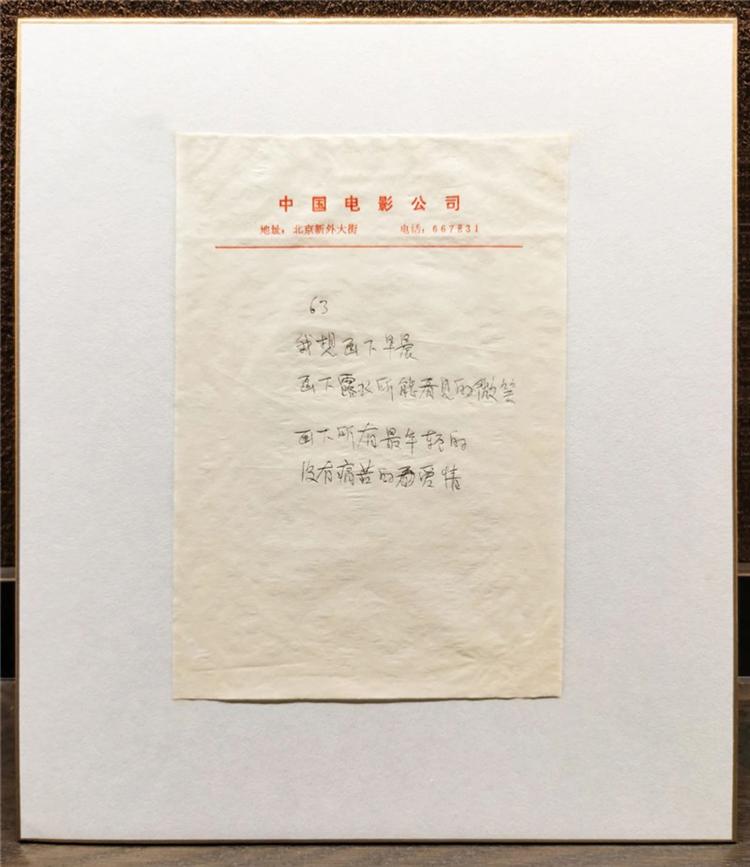 中国电影公司
地址：北京新外大街 电话：667831
63
我想画下早晨
画下露水所能看见的微笑
画下所有最年轻的
没有痛苦的爱情